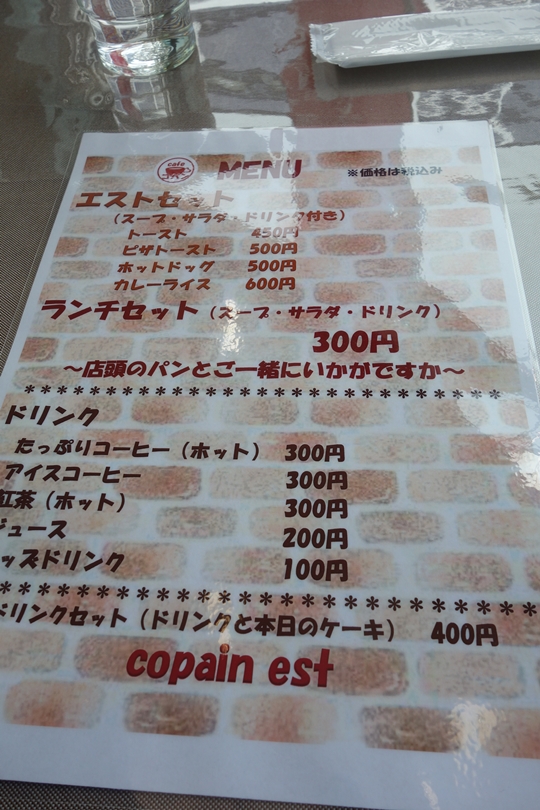 cafe
MENU ※価格は税込み
エストセット
（スープ・サラダ・ドリンク付き）
トースト 450円
ピザトースト 500円
ホットドッグ 500円
カレーライス 600円
ランチセット（スープ・サラダ・ドリンク）
300円
～店頭のパンとご一緒にいかがですか～
****************************************
ドリンク
たっぷりコーヒー（ホット） 300円
アイスコーヒー 300円
紅茶（ホット） 300円
ジュース 200円
ッズドリンク 100円
****************************************
ドリンクセット（ドリンクと本日のケーキ） 400円
copain est